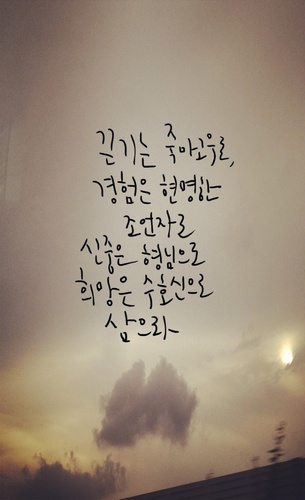 끈기는 죽마고우로,
경험은 현명한
조언자로
신중은 형님으로
희망은 수호신으로
삼으라